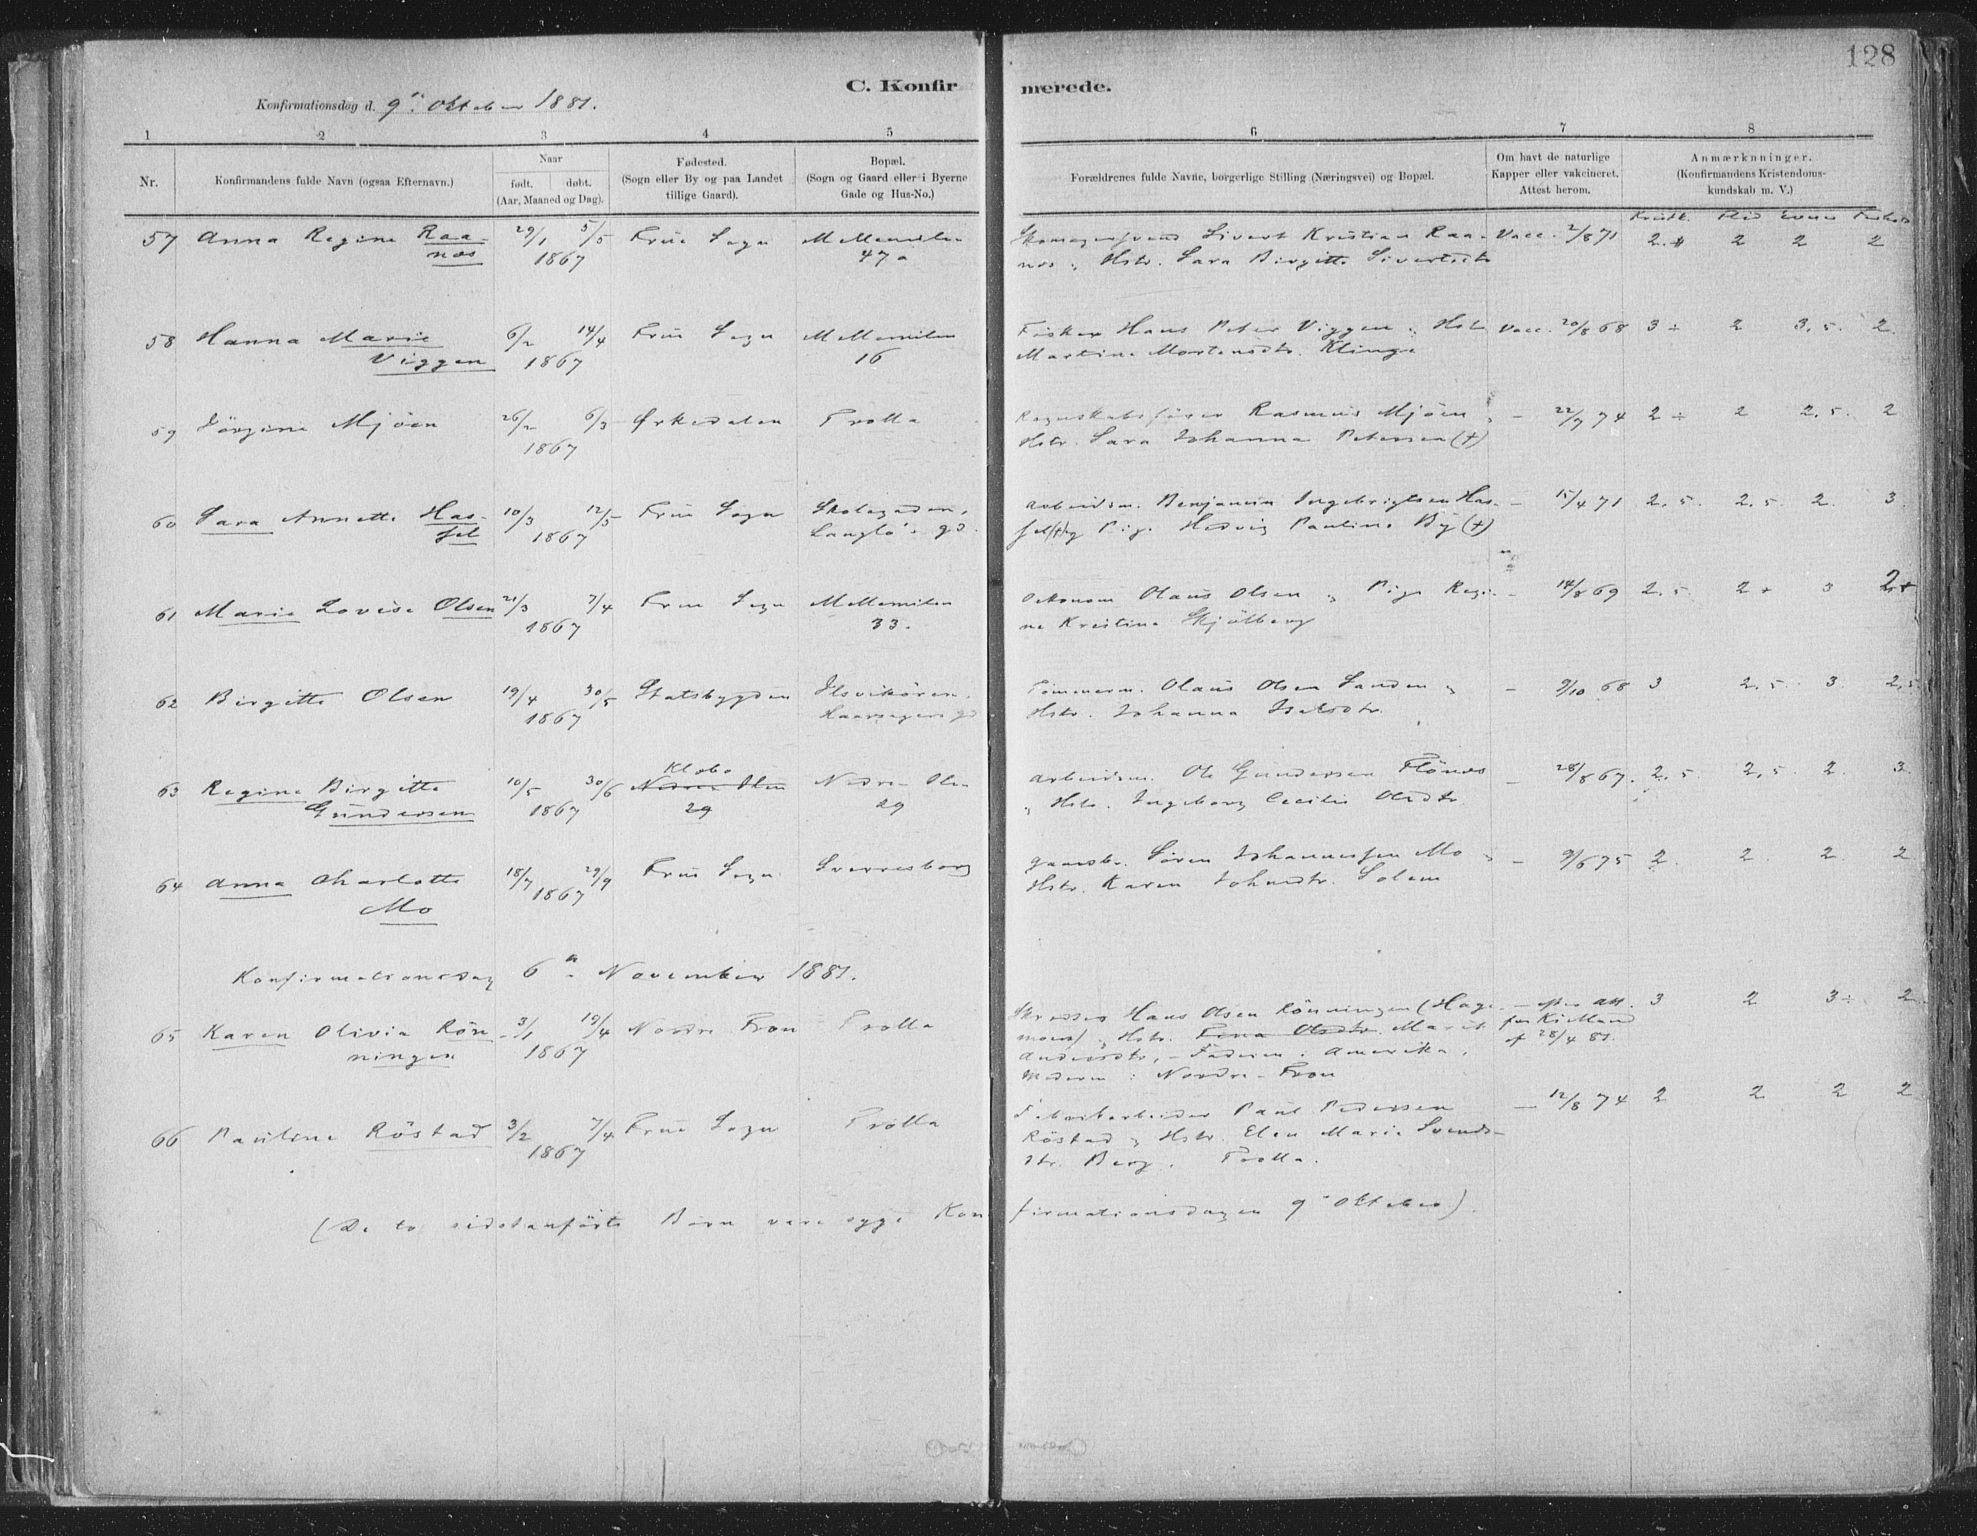 128
C. Konfirmerede.
Konfirmationsdag d. 9de Oktober 1881.
1 2 3 4 5 6 7 8
Nr. Konfirmandens fulde Navn (ogsaa Efternavn.) Naar født. døbt. (Aar, Maaned og Dag). Fødested. (Sogn eller By og paa Landet tillige Gaard). Bopæl. (Sogn og Gaard eller i Byerne Gade og Hus-No.) Forældrenes fulde Navne, borgerlige Stilling (Næringsvei) og Bopæl. Om havt de naturlige Kapper eller vakcineret. Attest herom. Anmærknninger. (Konfirmandens Kristendomskundskab m. V.)
Kristk. Flid Evner Forhold
57 Anna Regine Raa- 29/1 5/5 Frue Sogn Mellemilen Skomagersvend Sivert Kristian Raa- Vacc. 2/8 71 2.+ 2 2 2
næs 1867 47a næs, Hstr. Sara Birgitte Sivertsdtr
58 Hanna Marie 6/2 14/4 Frue Sogn Mellemilen Fisker Hans Peter Viggen, Hstr Vacc. 20/8 68 3÷ 2 3,5. 2
Viggen 1867 16 Martine Mortensdtr. Klinge
59 Jörgine Mjöen 26/2 6/3 Ørkedalen Trolla Regnskabsfører Rasmus Mjöen, – 22/7 74 2÷ 2 2,5. 2
1867 Hstr. Sara Johanna Petersen (+)
60 Sara Annette Has- 10/3 12/5 Frue Sogn Skolegaden, Arbeidsm. Benjamin Ingebrigtsen Has- – 15/4 71 2,5 2,5 2. 3
sel 1867 Langlö's gd. sel (+) og Pige Hedvig Pauline By (+)
61 Marie Lovise Olsen 21/3 7/4 Frue Sogn Mellemilen Oekonom Olaus Olsen, Pige Regi- – 14/8 69 2,5 2+ 3 2+
1867 33. ne Kristine Skjölberg
62 Birgitte Olsen 19/4 30/5 Statsbygden Ilsvikören, Tömmerm. Olaus Olsen Sanden, – 9/10 68 3 2,5. 3. 2,5
1867 Haarsagers gd Hstr. Johanna
63 Regine Birgitte 10/5 30/6 Klæbo Nedre Ilen Nedre-Ilen Arbeidsm. Ole Gundersen Flönes – 28/8 67. 2,5 2,5 2. 3
Gundersen 1867 29 29 , Hstr. Ingeborg Cecilie Olsdtr
64 Anna Charlotte 18/7 29/9 Frue Sogn Sverresborg Gaardbr. Sören Johannessen Mo, – 9/6 75 2. 2 2. 2
Mo 1867 Hstr. Karen Johnsdtr. Solem
Konfirmationsdag 6te November 1881.
65 Karen Olivia Rön- 3/1 19/4 Nordre Fron Trolla Skræder Hans Olsen Rönningen (Hage- – efter Att. 3 2 3÷ 2
ningen 1867 moen), Hstr. Lena Olsdtr. Marit
af 28/4 81.
Andersdtr, – Faderen i Amerika,
Moderen i Nordre-Fron
66 Pauline Röstad 3/2 7/4 Frue Sogn Trolla Fabrikarbeider Paul Pedersen – 12/8 74 2 2 2 2
1867 Röstad, Hstr. Elen Marie Svends-
dtr. Berg, Trolla.
(De to sidstanførte Børn vare syge Konfirmationsdagen 9de Oktober).